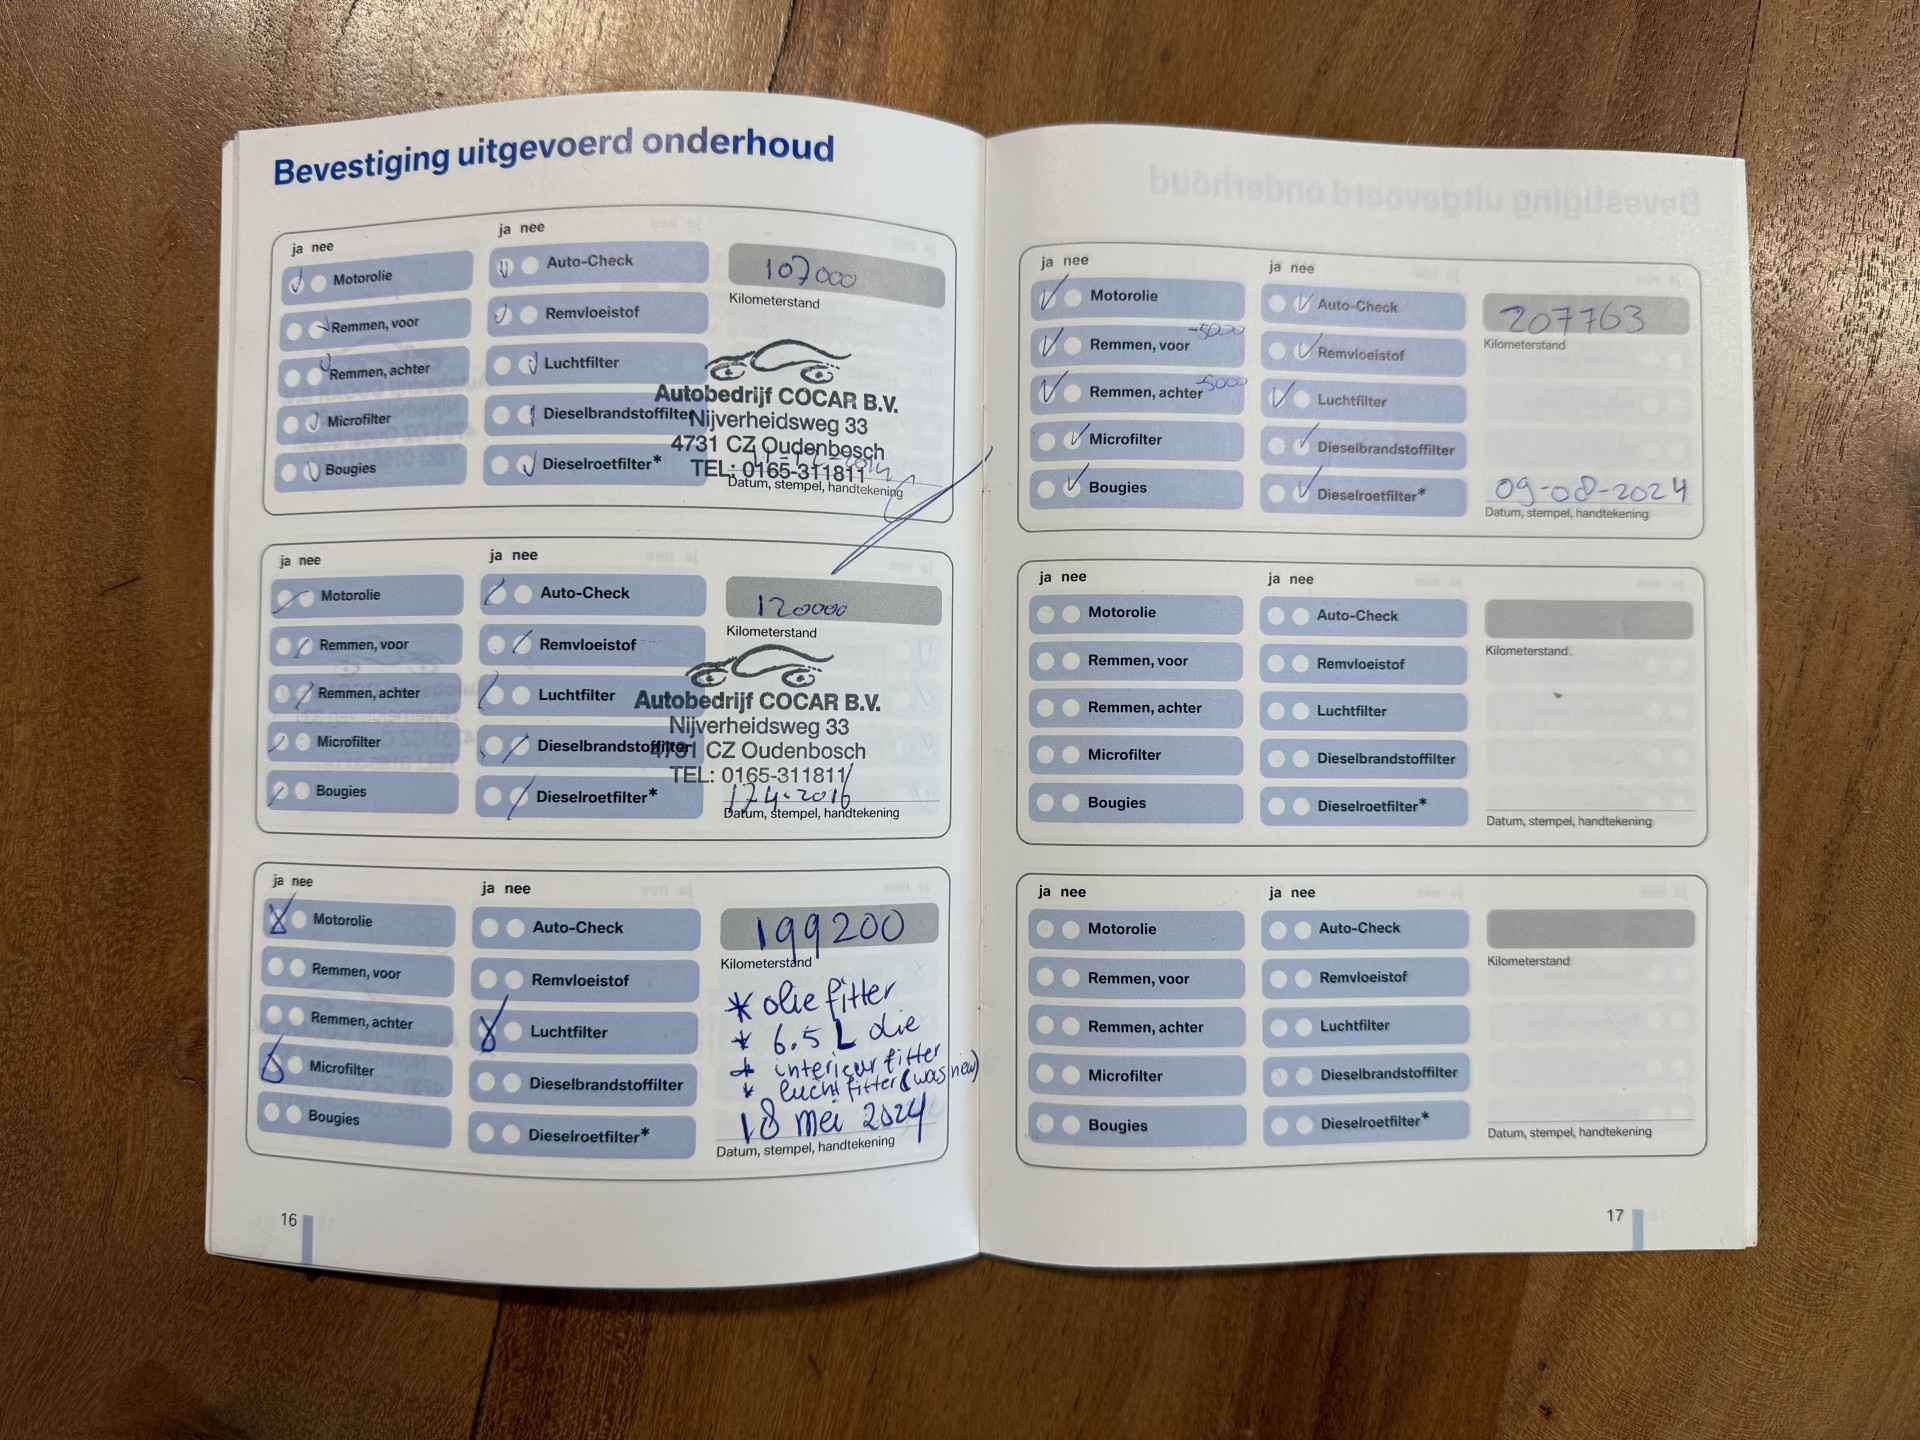 Bevestiging uitgevoerd onderhoud
ja nee
ja nee
Motorolie
Auto-Check
107000
Kilometerstand
Remmen, voor
Remvloeistof
Remmen, achter
Luchtfilter
Microfilter
Dieselbrandstoffilter
Bougies
Dieselroetfilter*
Autobedrijf COCAR B.V.
Nijverheidsweg 33
4731 CZ Oudenbosch
TEL: 0165-311811
Datum, stempel, handtekening
ja nee
ja nee
Motorolie
Auto-Check
120000
Kilometerstand
Remmen, voor
Remvloeistof
Remmen, achter
Luchtfilter
Microfilter
Dieselbrandstoffilter
Bougies
Dieselroetfilter*
Autobedrijf COCAR B.V.
Nijverheidsweg 33
4731 CZ Oudenbosch
TEL: 0165-311811
17-4-2016
Datum, stempel, handtekening
ja nee
ja nee
Motorolie
Auto-Check
199200
Kilometerstand
Remmen, voor
Remvloeistof
Remmen, achter
Luchtfilter
Microfilter
Dieselbrandstoffilter
Bougies
Dieselroetfilter*
* olie filter
* 6.5 L olie
* interieur filter
* lucht filter (was new)
18 mei 2024
Datum, stempel, handtekening
16
ja nee
ja nee
Motorolie
Auto-Check
207763
Kilometerstand
Remmen, voor -5000
Remvloeistof
Remmen, achter -5000
Luchtfilter
Microfilter
Dieselbrandstoffilter
Bougies
Dieselroetfilter*
09-08-2024
Datum, stempel, handtekening
ja nee
ja nee
Motorolie
Auto-Check
Kilometerstand
Remmen, voor
Remvloeistof
Remmen, achter
Luchtfilter
Microfilter
Dieselbrandstoffilter
Bougies
Dieselroetfilter*
Datum, stempel, handtekening
ja nee
ja nee
Motorolie
Auto-Check
Kilometerstand
Remmen, voor
Remvloeistof
Remmen, achter
Luchtfilter
Microfilter
Dieselbrandstoffilter
Bougies
Dieselroetfilter*
Datum, stempel, handtekening
17